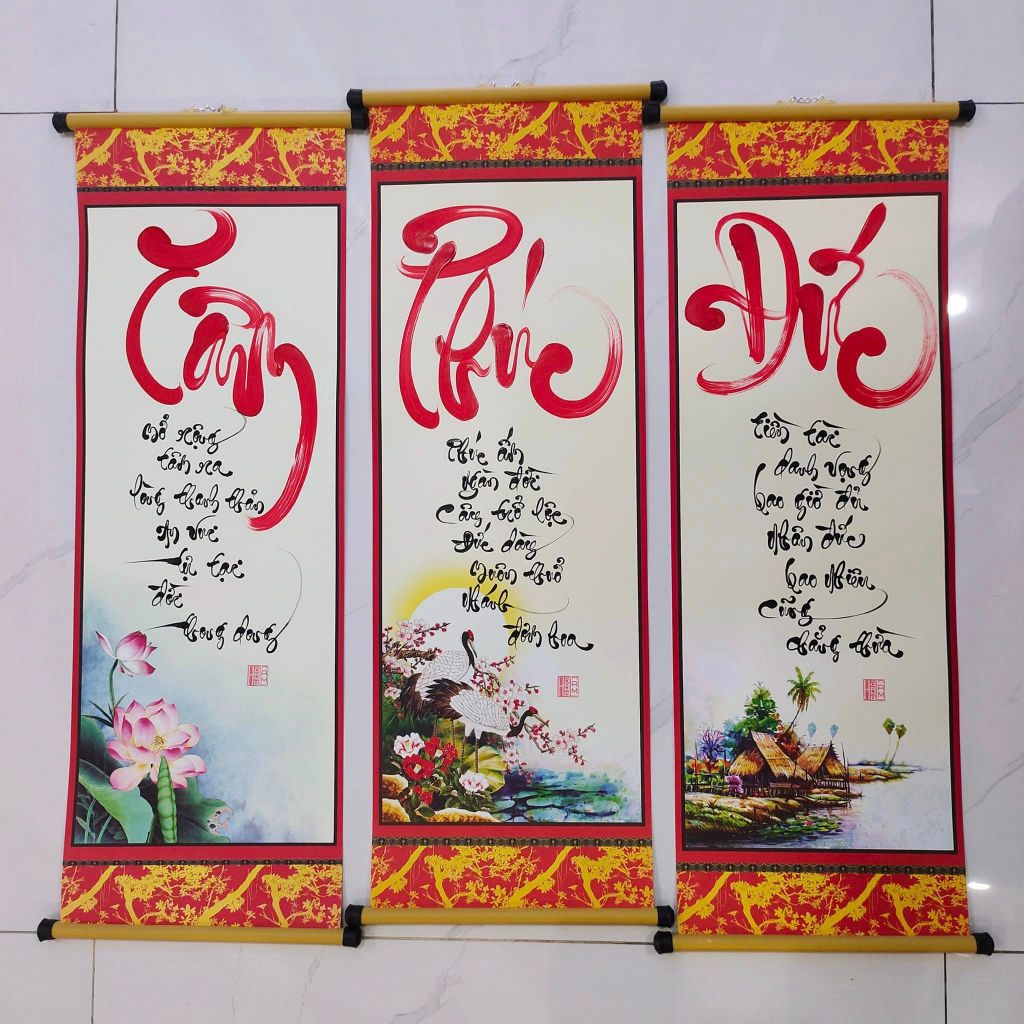 Tâm
Mở rộng
tâm ra
lòng thanh thản
An vui
Tự tại
đời
thong dong
Phúc
Phúc ấm
ngàn đời
Càng trổ lộc
Đức dày
muôn thuở
Nhánh
đơm hoa
Đức
tiền tài
danh vọng
bao giờ đủ
Nhân đức
bao nhiêu
Cũng
chẳng thừa